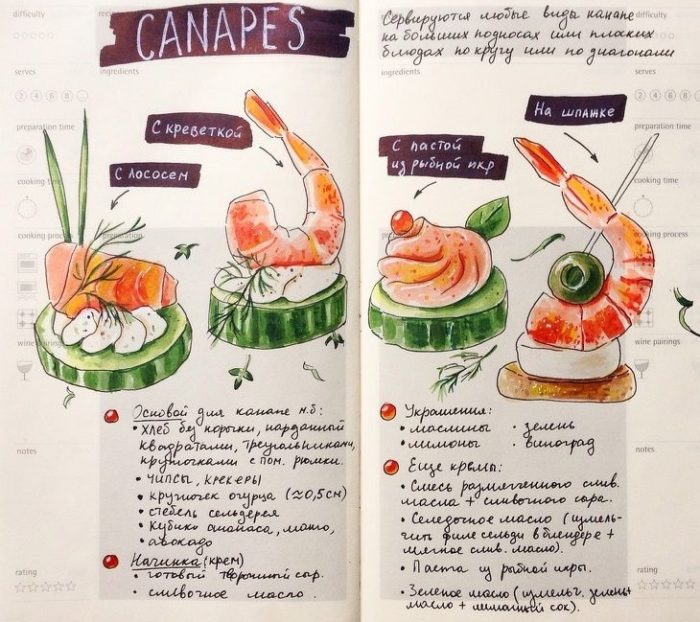 CANAPES
difficulty
serves
ingredients
2 4 6 8 ...
preparation time
С креветкой
С лососем
cooking time
cooking process
preparation
wine pairings
notes
Основой для канапе м.б:
• хлеб без корочки, нарезанный
квадратами, треугольниками,
кружочками с пом. рюмки.
• чипсы, крекеры
• кружочек огурца (≈0,5см)
• стебель сельдерея
• кубик ананаса, манго,
• авокадо
Начинка (крем)
• готовый творожный сыр.
• сливочное масло.
rating
Сервируются любые виды канапе
на больших подносах или плоских
блюдах по кругу или по диагонали
difficulty
ingredients
serves
2 4 6 8
На шпажке
preparation time
С пастой
из рыбной икр
cooking time
cooking process
wine pairings
Украшения:
• маслины • зелень
• лимоны • виноград
Еще кремы:
• Смесь размягченного слив.
масла + сливочного сыра.
• Селедочное масло (измель-
чить филе сельди в блендере +
мягкое слив. масло).
• Паста из рыбной икры.
• Зеленое масло (измельч. зелень +
масло + лимонный сок).
notes
rating